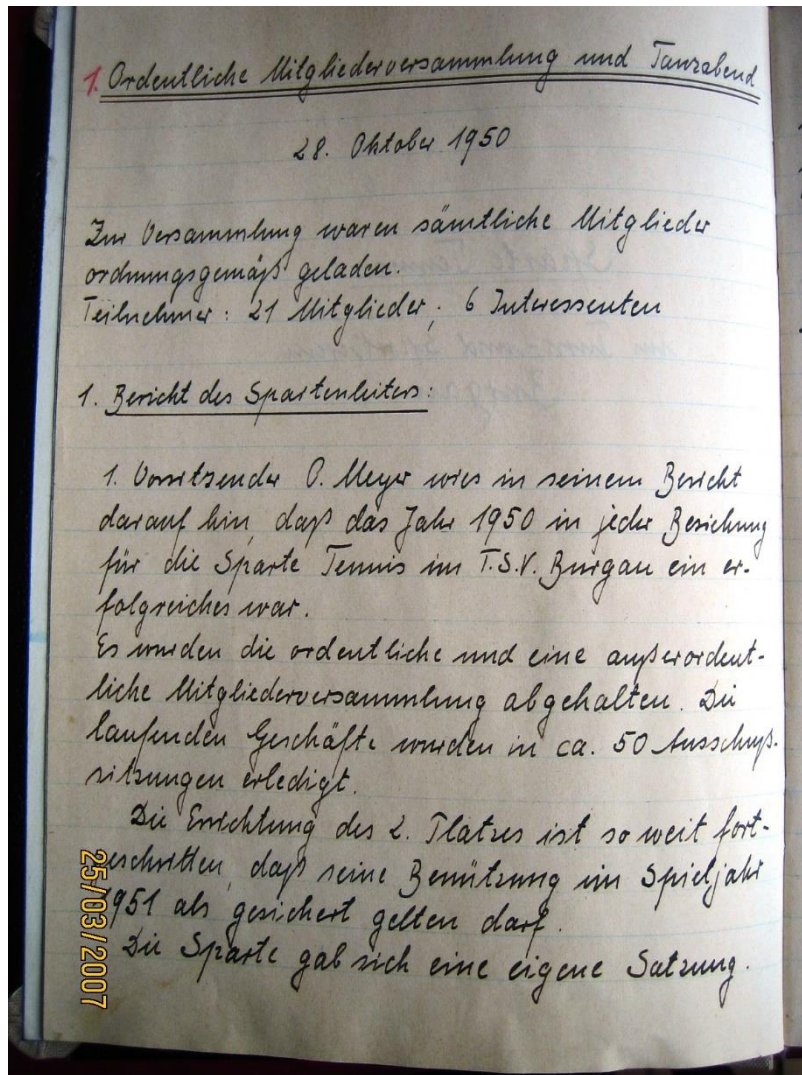 1. Ordentliche Mitgliederversammlung und Tanzabend
28. Oktober 1950
Zur Versammlung waren sämtliche Mitglieder
ordnungsgemäß geladen.
Teilnehmer: 21 Mitglieder, 6 Interessenten
1. Bericht des Spartenleiters:
1. Vorsitzender O. Meyer wies in seinem Bericht
darauf hin, daß das Jahr 1950 in jeder Beziehung
für die Sparte Tennis im T.S.V. Burgau ein er-
folgreiches war.
Es wurden die ordentliche und eine außerordent-
liche Mitgliederversammlung abgehalten. Die
laufenden Geschäfte wurden in ca. 50 Ausschuß-
sitzungen erledigt.
Die Errichtung des 2. Platzes ist so weit fort-
geschritten, daß seine Benützung im Spieljahr
1951 als gesichert gelten darf.
Die Sparte gab sich eine eigene Satzung.
25/03/2007